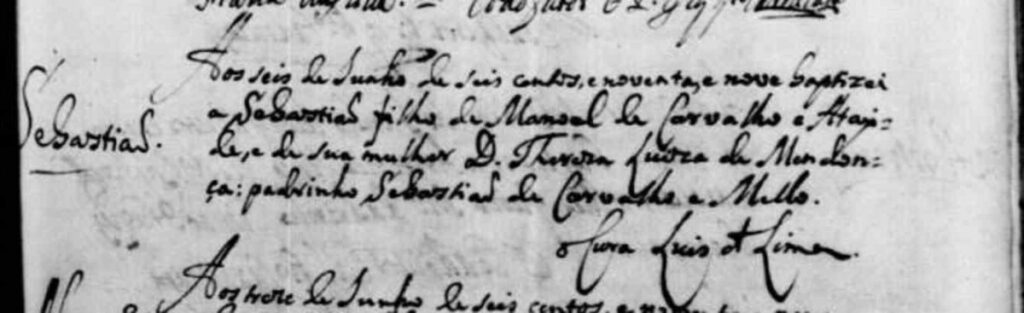 Sebastiaõ.
Aos seis de Junho de seis centos, e noventa, e nove baptizei
a Sebastiaõ filho de Manoel de Carvalho e Atay=
de, e de sua mulher D. Thereza Luiza de Mendon=
ça: padrinho Sebastiaõ de Carvalho e Mello.
o Cura Luis de Lima.
Aos treze de Junho de seis centos, e